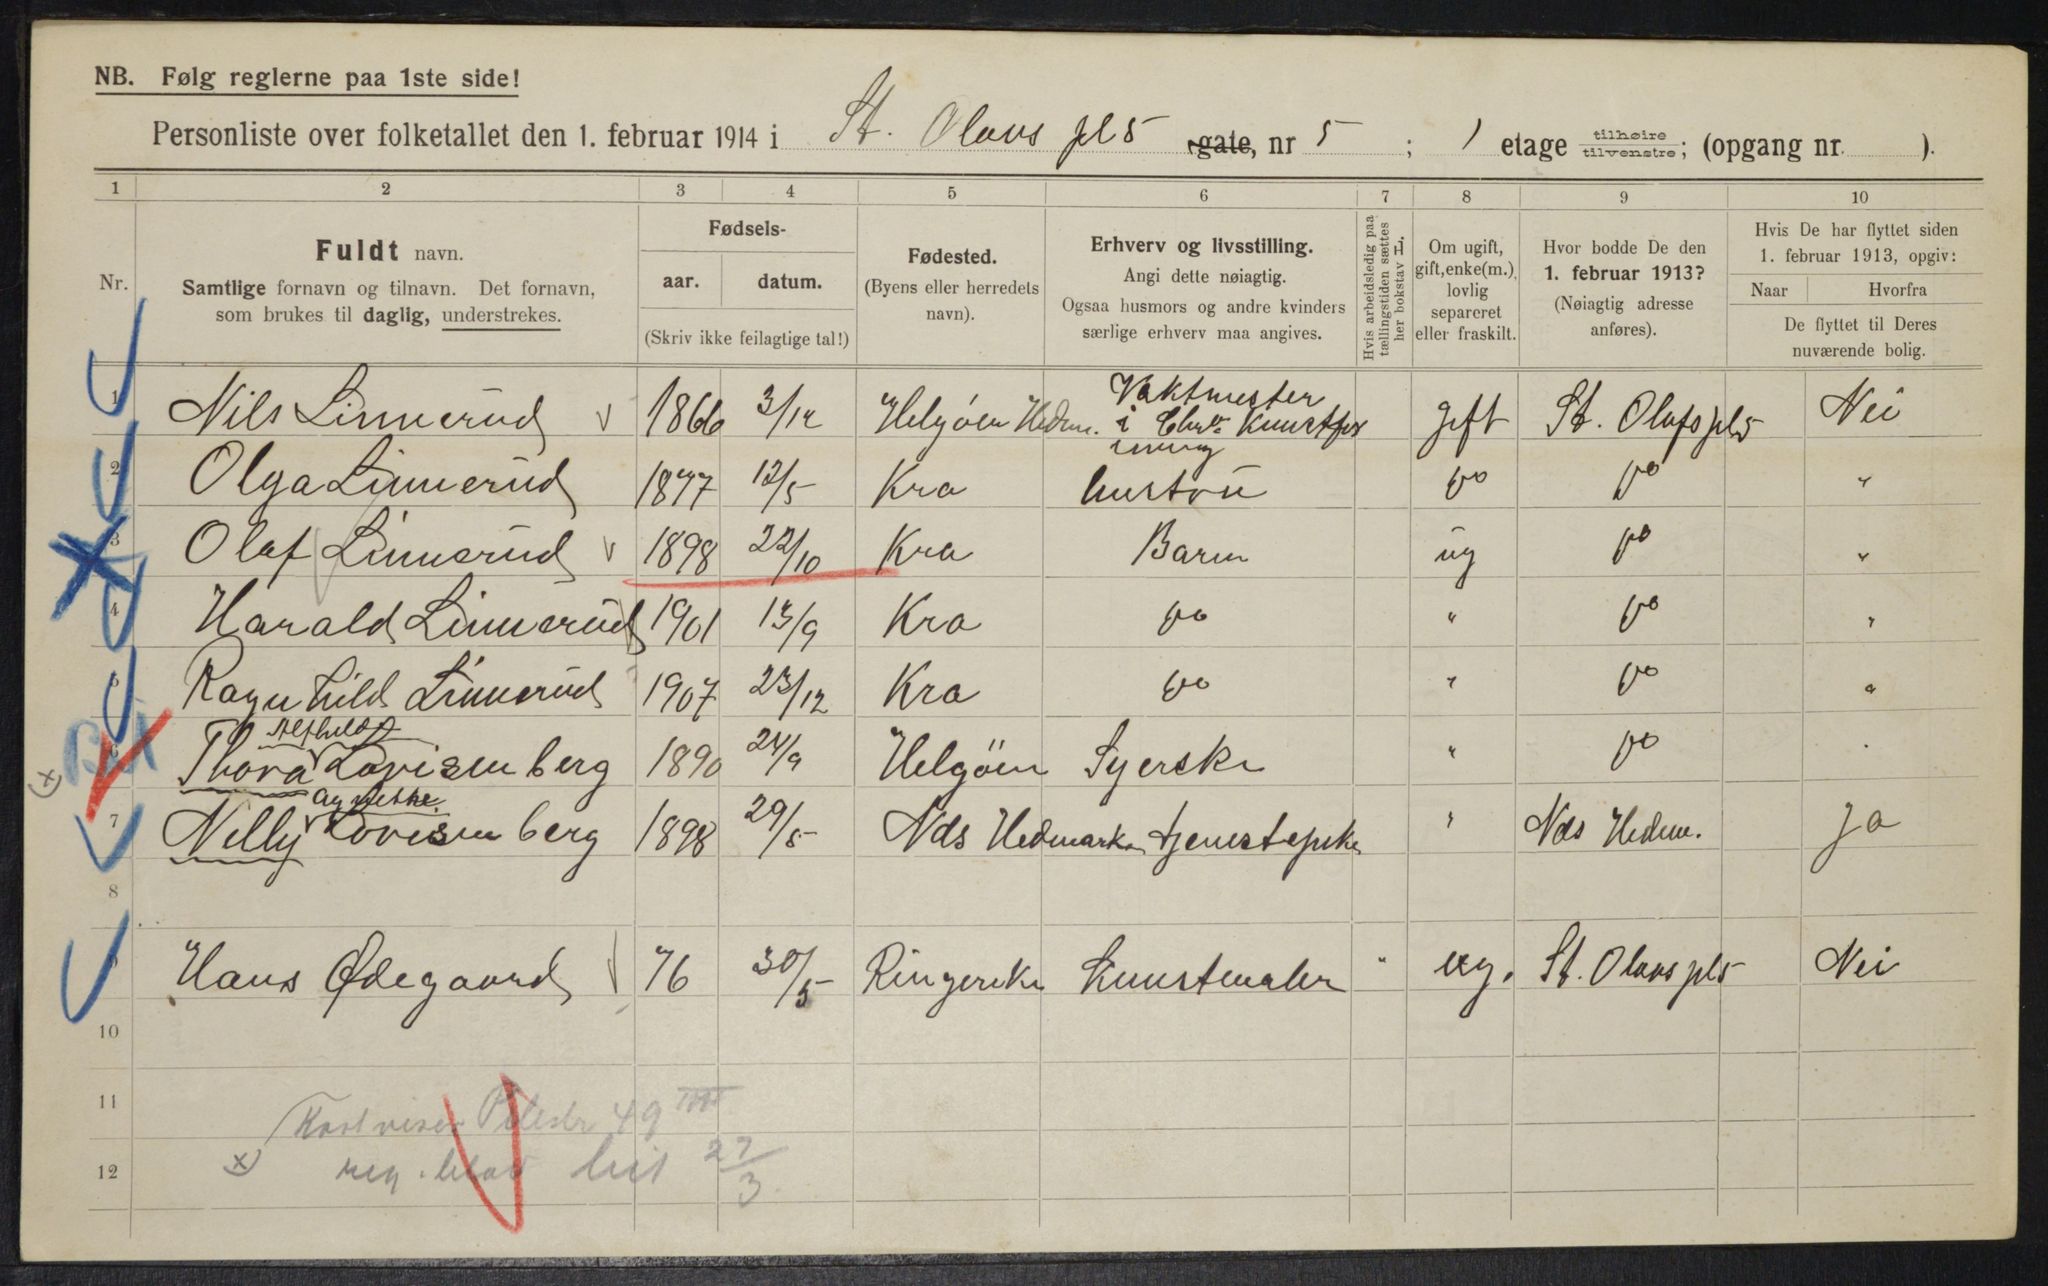 NB. Følg reglerne paa 1ste side!
Personliste over folketallet den 1. februar 1914 i St. Olavs pl 5 gate, nr 5 ; 1 etage tilhøire tilvenstre; (opgang nr. ).
1 2 3 4 5 6 7 8 9 10
Nr.
Fuldt navn.
Samtlige fornavn og tilnavn. Det fornavn,
som brukes til daglig, understrekes.
Fødsels-
aar. datum.
(Skriv ikke feilagtige tal!)
Fødested.
(Byens eller herredets
navn).
Erhverv og livsstilling.
Angi dette nøiagtig.
Ogsaa husmors og andre kvinders
særlige erhverv maa angives.
Hvis arbeidsledig paa
tællingstiden sættes
her bokstav L.
Om ugift,
gift, enke(m.),
lovlig
separeret
eller fraskilt.
Hvor bodde De den
1. februar 1913?
(Nøiagtig adresse
anføres).
Hvis De har flyttet siden
1. februar 1913, opgiv:
Naar Hvorfra
De flyttet til Deres
nuværende bolig.
1 Nils Linnerud 1866 3/12 Helgöen Hedm. Vaktmester i Chra Kunstforening gift St. Olafs pl 5 Nei
2 Olga Linnerud 1877 12/5 Kra hustru do do "
3 Olaf Linnerud 1898 22/10 Kra Barn ug do "
4 Harald Linnerud 1901 13/9 Kra do " do "
5 Ragnhild Linnerud 1907 23/12 Kra do " do "
6 Thora Alfhild Lovisenberg 1890 24/9 Helgöen Syerske " do "
7 Nelly Agnethe Lovisenberg 1898 29/5 Nds Hedmarken tjenestepike " Nds Hedm. Ja
8
9 Hans Ødegaard 76 30/5 Ringerike Kunstmaler " ug. St. Olavs pl 5 Nei
10
11 Pilestr 49
12 x) reg. hit 27/3